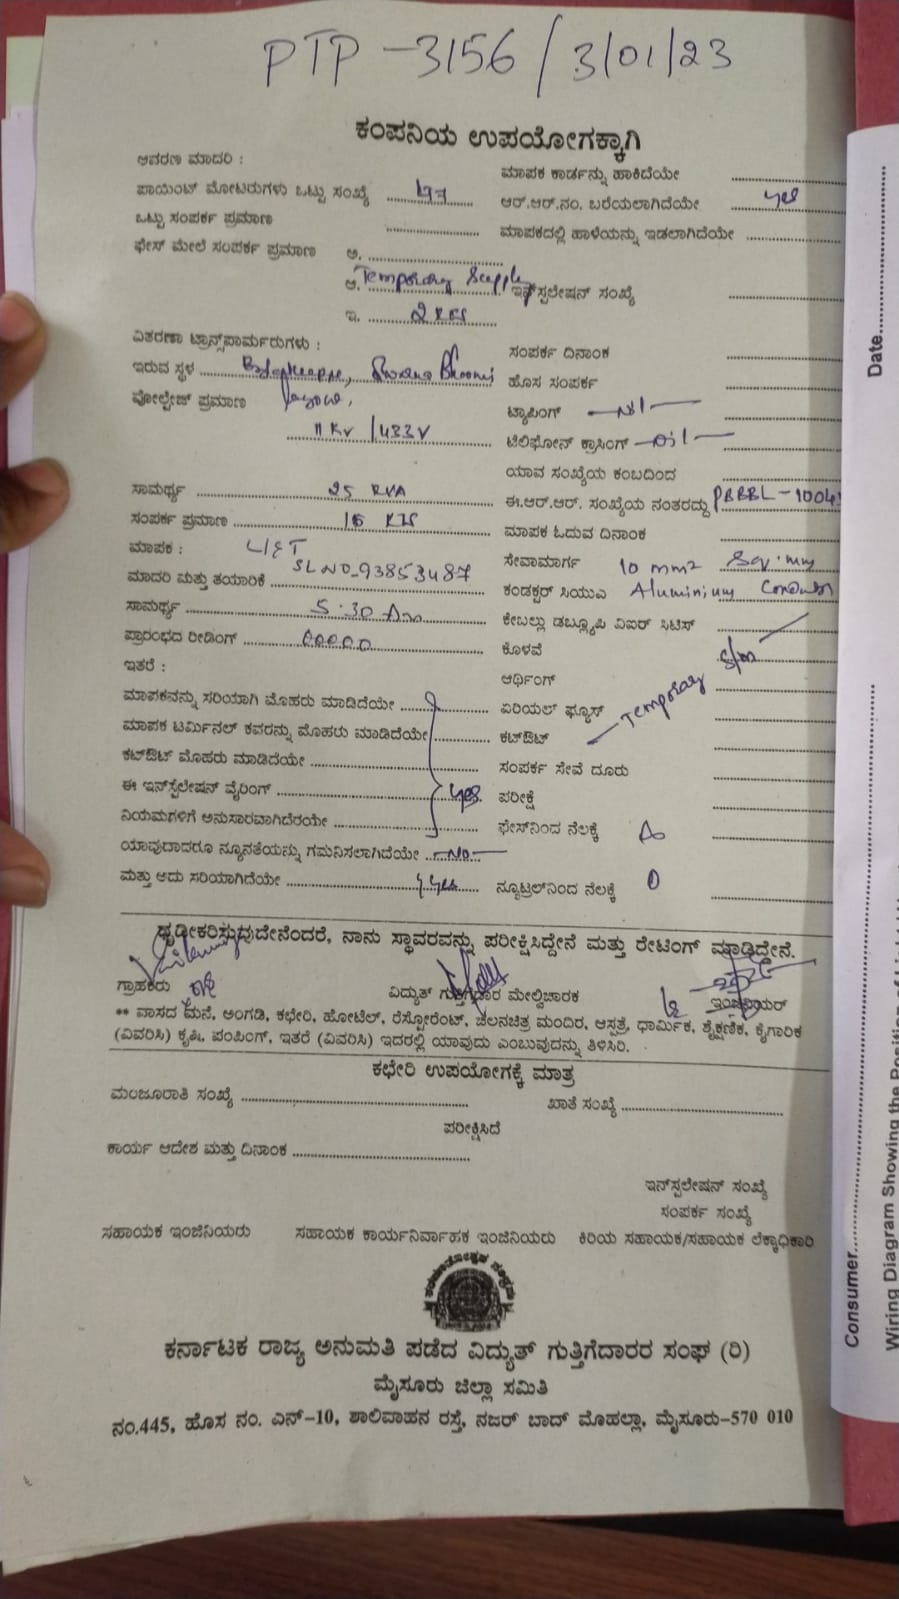 PTP - 3156 / 3/01/23
ಕಂಪನಿಯ ಉಪಯೋಗಕ್ಕಾಗಿ
ಆವರಣ ಮಾದರಿ :
ಪಾಯಿಂಟ್ ಮೋಟರುಗಳು ಒಟ್ಟು ಸಂಖ್ಯೆ
ಒಟ್ಟು ಸಂಪರ್ಕ ಪ್ರಮಾಣ
ಫೇಸ್ ಮೇಲೆ ಸಂಪರ್ಕ ಪ್ರಮಾಣ ಅ.
ಆ. Temporary Supply
ಇ. 2 KW
ವಿತರಣಾ ಟ್ರಾನ್ಸ್‌ಪಾರ್ಮರುಗಳು :
ಇರುವ ಸ್ಥಳ
ವೋಲ್ಟೇಜ್ ಪ್ರಮಾಣ
11 KV / 433V
ಸಾಮರ್ಥ್ಯ 25 KVA
ಸಂಪರ್ಕ ಪ್ರಮಾಣ 16 KW
ಮಾಪಕ : L&T
ಮಾದರಿ ಮತ್ತು ತಯಾರಿಕೆ SLNO-93853487
ಸಾಮರ್ಥ್ಯ 5-30 Am
ಪ್ರಾರಂಭದ ರೀಡಿಂಗ್ 00000
ಇತರೆ :
ಮಾಪಕವನ್ನು ಸರಿಯಾಗಿ ಮೊಹರು ಮಾಡಿದೆಯೇ
ಮಾಪಕ ಟರ್ಮಿನಲ್ ಕವರನ್ನು ಮೊಹರು ಮಾಡಿದೆಯೇ
ಕಟ್‌ಔಟ್ ಮೊಹರು ಮಾಡಿದೆಯೇ
ಈ ಇನ್‌ಸ್ಟಲೇಷನ್ ವೈರಿಂಗ್ yes
ನಿಯಮಗಳಿಗೆ ಅನುಸಾರವಾಗಿದೆರಯೇ
ಯಾವುದಾದರೂ ನ್ಯೂನತೆಯನ್ನು ಗಮನಿಸಲಾಗಿದೆಯೇ -No-
ಮತ್ತು ಅದು ಸರಿಯಾಗಿದೆಯೇ yes
ಮಾಪಕ ಕಾರ್ಡನ್ನು ಹಾಕಿದೆಯೇ
ಆರ್.ಆರ್.ನಂ. ಬರೆಯಲಾಗಿದೆಯೇ yes
ಮಾಪಕದಲ್ಲಿ ಹಾಳೆಯನ್ನು ಇಡಲಾಗಿದೆಯೇ
ಇನ್‌ಸ್ಟಲೇಷನ್ ಸಂಖ್ಯೆ
ಸಂಪರ್ಕ ದಿನಾಂಕ
ಹೊಸ ಸಂಪರ್ಕ
ಟ್ಯಾಪಿಂಗ್ -Nil-
ಟೆಲಿಫೋನ್ ಕ್ರಾಸಿಂಗ್ -Nil-
ಯಾವ ಸಂಖ್ಯೆಯ ಕಂಬದಿಂದ
ಈ.ಆರ್.ಆರ್. ಸಂಖ್ಯೆಯ ನಂತರದ್ದು
ಮಾಪಕ ಓದುವ ದಿನಾಂಕ
ಸೇವಾಮಾರ್ಗ 10 mm2 Sq.mm
ಕಂಡಕ್ಟರ್ ಸಿಯುವಿ Aluminium
ಕೇಬಲ್ಲು ಡಬ್ಲ್ಯೂಪಿ ವಿಐರ್ ಸಿಟಿಸ್
ಕೊಳವೆ
ಆರ್ಥಿಂಗ್
ಏರಿಯಲ್ ಫ್ಯೂಸ್
ಕಟ್‌ಔಟ್ Temporary S/m
ಸಂಪರ್ಕ ಸೇವೆ ದೂರು
ಪರೀಕ್ಷೆ
ಫೇಸ್‌ನಿಂದ ನೆಲಕ್ಕೆ
ನ್ಯೂಟ್ರಲ್‌ನಿಂದ ನೆಲಕ್ಕೆ 0
ಧೃಡೀಕರಿಸುವುದೇನೆಂದರೆ, ನಾನು ಸ್ಥಾವರವನ್ನು ಪರೀಕ್ಷಿಸಿದ್ದೇನೆ ಮತ್ತು ರೇಟಿಂಗ್ ಮಾಡಿದ್ದೇನೆ.
ಗ್ರಾಹಕರು ವಿದ್ಯುತ್ ಗುತ್ತಿಗೆದಾರ ಮೇಲ್ವಿಚಾರಕ ಇಂಜಿನಿಯರ್
** ವಾಸದ ಮನೆ, ಅಂಗಡಿ, ಕಛೇರಿ, ಹೋಟೆಲ್, ರೆಸ್ಟೋರೆಂಟ್, ಚಲನಚಿತ್ರ ಮಂದಿರ, ಆಸ್ಪತ್ರೆ, ಧಾರ್ಮಿಕ, ಶೈಕ್ಷಣಿಕ, ಕೈಗಾರಿಕ
(ವಿವರಿಸಿ) ಕೃಷಿ, ಪಂಪಿಂಗ್, ಇತರೆ (ವಿವರಿಸಿ) ಇದರಲ್ಲಿ ಯಾವುದು ಎಂಬುವುದನ್ನು ತಿಳಿಸಿರಿ.
ಕಛೇರಿ ಉಪಯೋಗಕ್ಕೆ ಮಾತ್ರ
ಮಂಜೂರಾತಿ ಸಂಖ್ಯೆ ಖಾತೆ ಸಂಖ್ಯೆ
ಪರೀಕ್ಷಿಸಿದೆ
ಕಾರ್ಯ ಆದೇಶ ಮತ್ತು ದಿನಾಂಕ
ಇನ್‌ಸ್ಟಲೇಷನ್ ಸಂಖ್ಯೆ
ಸಂಪರ್ಕ ಸಂಖ್ಯೆ
ಸಹಾಯಕ ಇಂಜಿನಿಯರು ಸಹಾಯಕ ಕಾರ್ಯನಿರ್ವಾಹಕ ಇಂಜಿನಿಯರು ಕಿರಿಯ ಸಹಾಯಕ/ಸಹಾಯಕ ಲೆಕ್ಕಾಧಿಕಾರಿ
ಕರ್ನಾಟಕ ರಾಜ್ಯ ಅನುಮತಿ ಪಡೆದ ವಿದ್ಯುತ್ ಗುತ್ತಿಗೆದಾರರ ಸಂಘ (ರಿ)
ಮೈಸೂರು ಜಿಲ್ಲಾ ಸಮಿತಿ
ನಂ.445, ಹೊಸ ನಂ. ಎನ್-10, ಶಾಲಿವಾಹನ ರಸ್ತೆ, ನಜರ್ ಬಾದ್ ಮೊಹಲ್ಲಾ, ಮೈಸೂರು-570 010
Date
Consumer
Wiring Diagram Showing the Position of